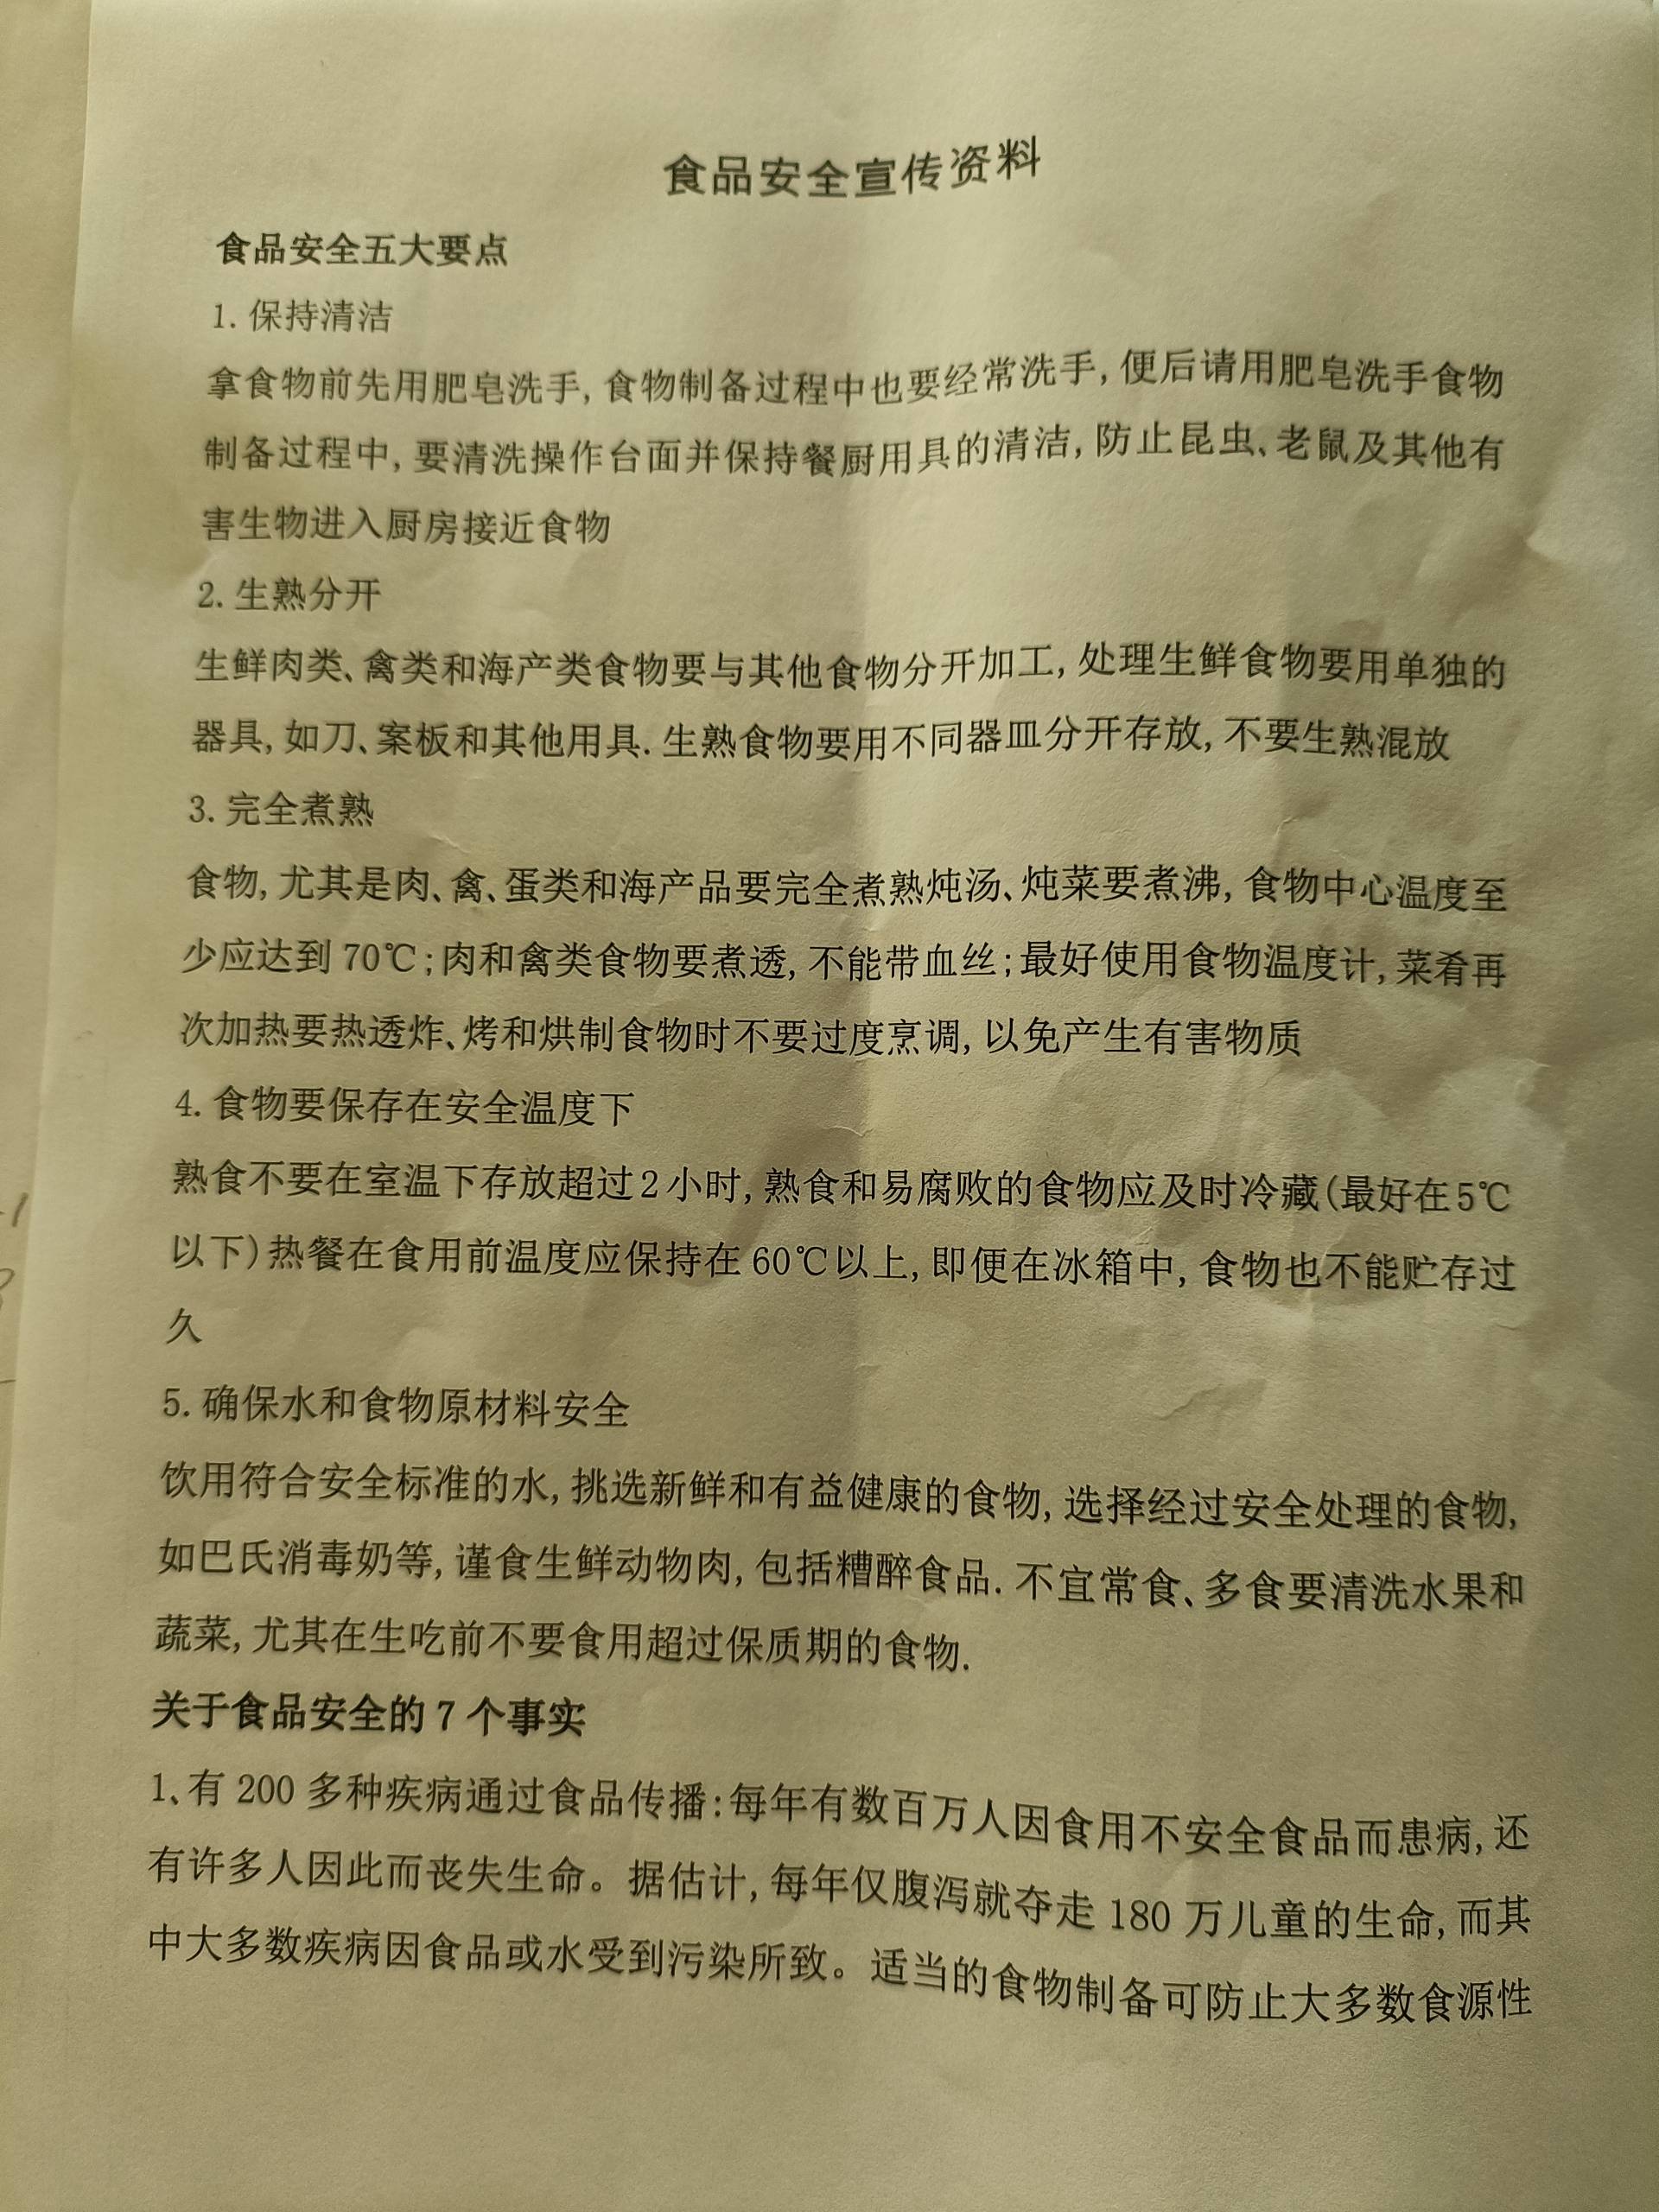 食品安全宣传资料
食品安全五大要点
1. 保持清洁
拿食物前先用肥皂洗手, 食物制备过程中也要经常洗手, 便后请用肥皂洗手食物
制备过程中, 要清洗操作台面并保持餐厨用具的清洁, 防止昆虫、老鼠及其他有
害生物进入厨房接近食物
2. 生熟分开
生鲜肉类、禽类和海产类食物要与其他食物分开加工, 处理生鲜食物要用单独的
器具, 如刀、案板和其他用具. 生熟食物要用不同器皿分开存放, 不要生熟混放
3. 完全煮熟
食物, 尤其是肉、禽、蛋类和海产品要完全煮熟炖汤、炖菜要煮沸, 食物中心温度至
少应达到 70℃; 肉和禽类食物要煮透, 不能带血丝; 最好使用食物温度计, 菜肴再
次加热要热透炸、烤和烘制食物时不要过度烹调, 以免产生有害物质
4. 食物要保存在安全温度下
熟食不要在室温下存放超过2小时, 熟食和易腐败的食物应及时冷藏(最好在5℃
以下)热餐在食用前温度应保持在 60℃以上, 即便在冰箱中, 食物也不能贮存过
久
5. 确保水和食物原材料安全
饮用符合安全标准的水, 挑选新鲜和有益健康的食物, 选择经过安全处理的食物,
如巴氏消毒奶等, 谨食生鲜动物肉, 包括糟醉食品. 不宜常食、多食要清洗水果和
蔬菜, 尤其在生吃前不要食用超过保质期的食物.
关于食品安全的 7 个事实
1、有 200 多种疾病通过食品传播: 每年有数百万人因食用不安全食品而患病, 还
有许多人因此而丧失生命。据估计, 每年仅腹泻就夺走 180 万儿童的生命, 而其
中大多数疾病因食品或水受到污染所致。适当的食物制备可防止大多数食源性